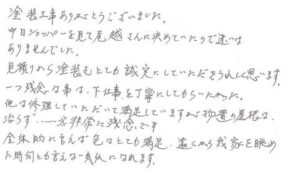 塗装工事ありがとうございました。
中日ショッパーを見て尾越さんに決めていたので迷いは
ありませんでした。
見積りから塗装もとても誠実にしていただきうれしく思います。
一つ残念な事は、下仕事を丁寧にしてもらったい。
他は修理していただいて満足していますが物置の屋根は
治らず…一ヶ非常に残念です
全体的に言えば色はとても満足、遠くから我家を眺め
た時何とも言えない気分になれます。